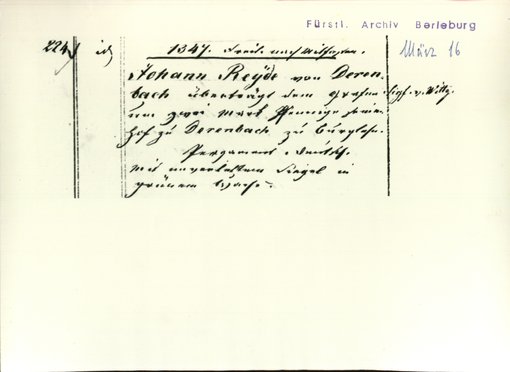 Fürstl. Archiv Berleburg
März 16
224
1347. Freit. nach Mitfasten.
Johann Reyde von Deren-
bach überträgt dem Grafen Sigf. v. Wittg.
um zwei Mark Pfennige seinen
Hof zu Derenbach zu Burglehn.
Pergament. deutsch.
Mit unverletztem Siegel in
grünem Wachs.